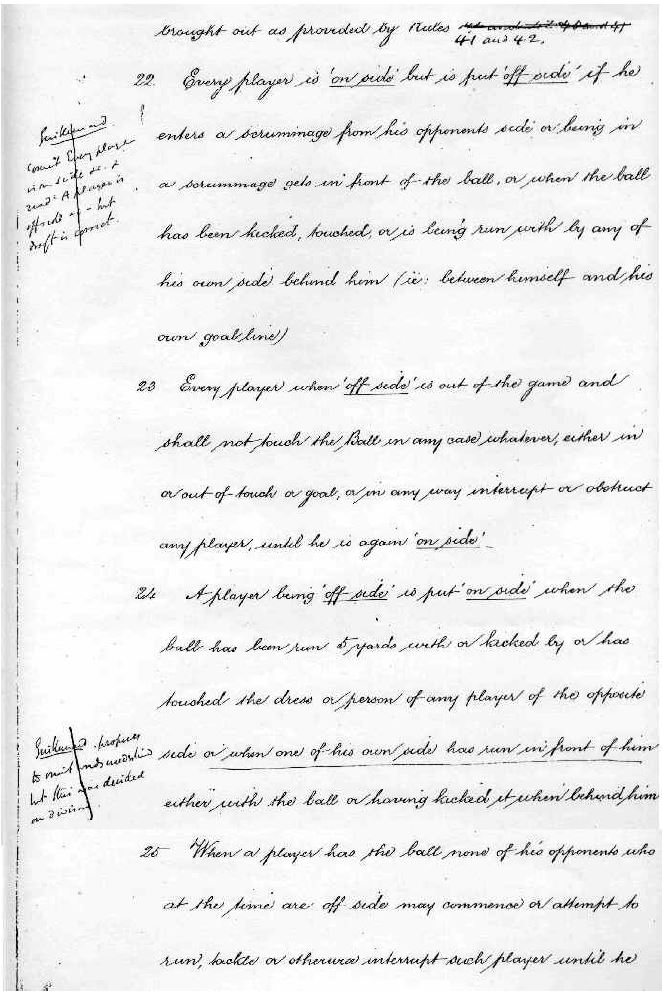 brought out as provided by Rules
41 and 42.
22. Every player is 'on side' but is put 'off side' if he
enters a scrummage from his opponents side or being in
a scrummage gets in front of the ball, or when the ball
has been kicked, touched, or is being run with by any of
his own side behind him (ie: between himself and his
own goal line)
23 Every player when 'off side' is out of the game and
shall not touch the Ball in any case whatever, either in
or out of touch or goal, or in any way interrupt or obstruct
any player, until he is again 'on side'
24 A player being 'off side' is put 'on side' when the
ball has been run 5 yards with or kicked by or has
touched the dress or person of any player of the opposite
side or when one of his own side has run in front of him
either with the ball or having kicked it when behind him
25 When a player has the ball none of his opponents who
at the time are off side may commence or attempt to
run, tackle or otherwise interrupt such player until he
omit Every player
is on side &c &
read A player is
offside - but
draft is correct.
proposes
to omit underlined
but this was decided
on